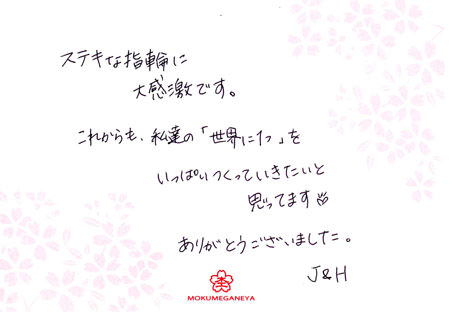 ステキな指輪に
大感激です。
これからも、私達の「世界に1つ」を
いっぱいつくっていきたいと
思ってます
ありがとうございました。
J&H
MOKUMEGANEYA